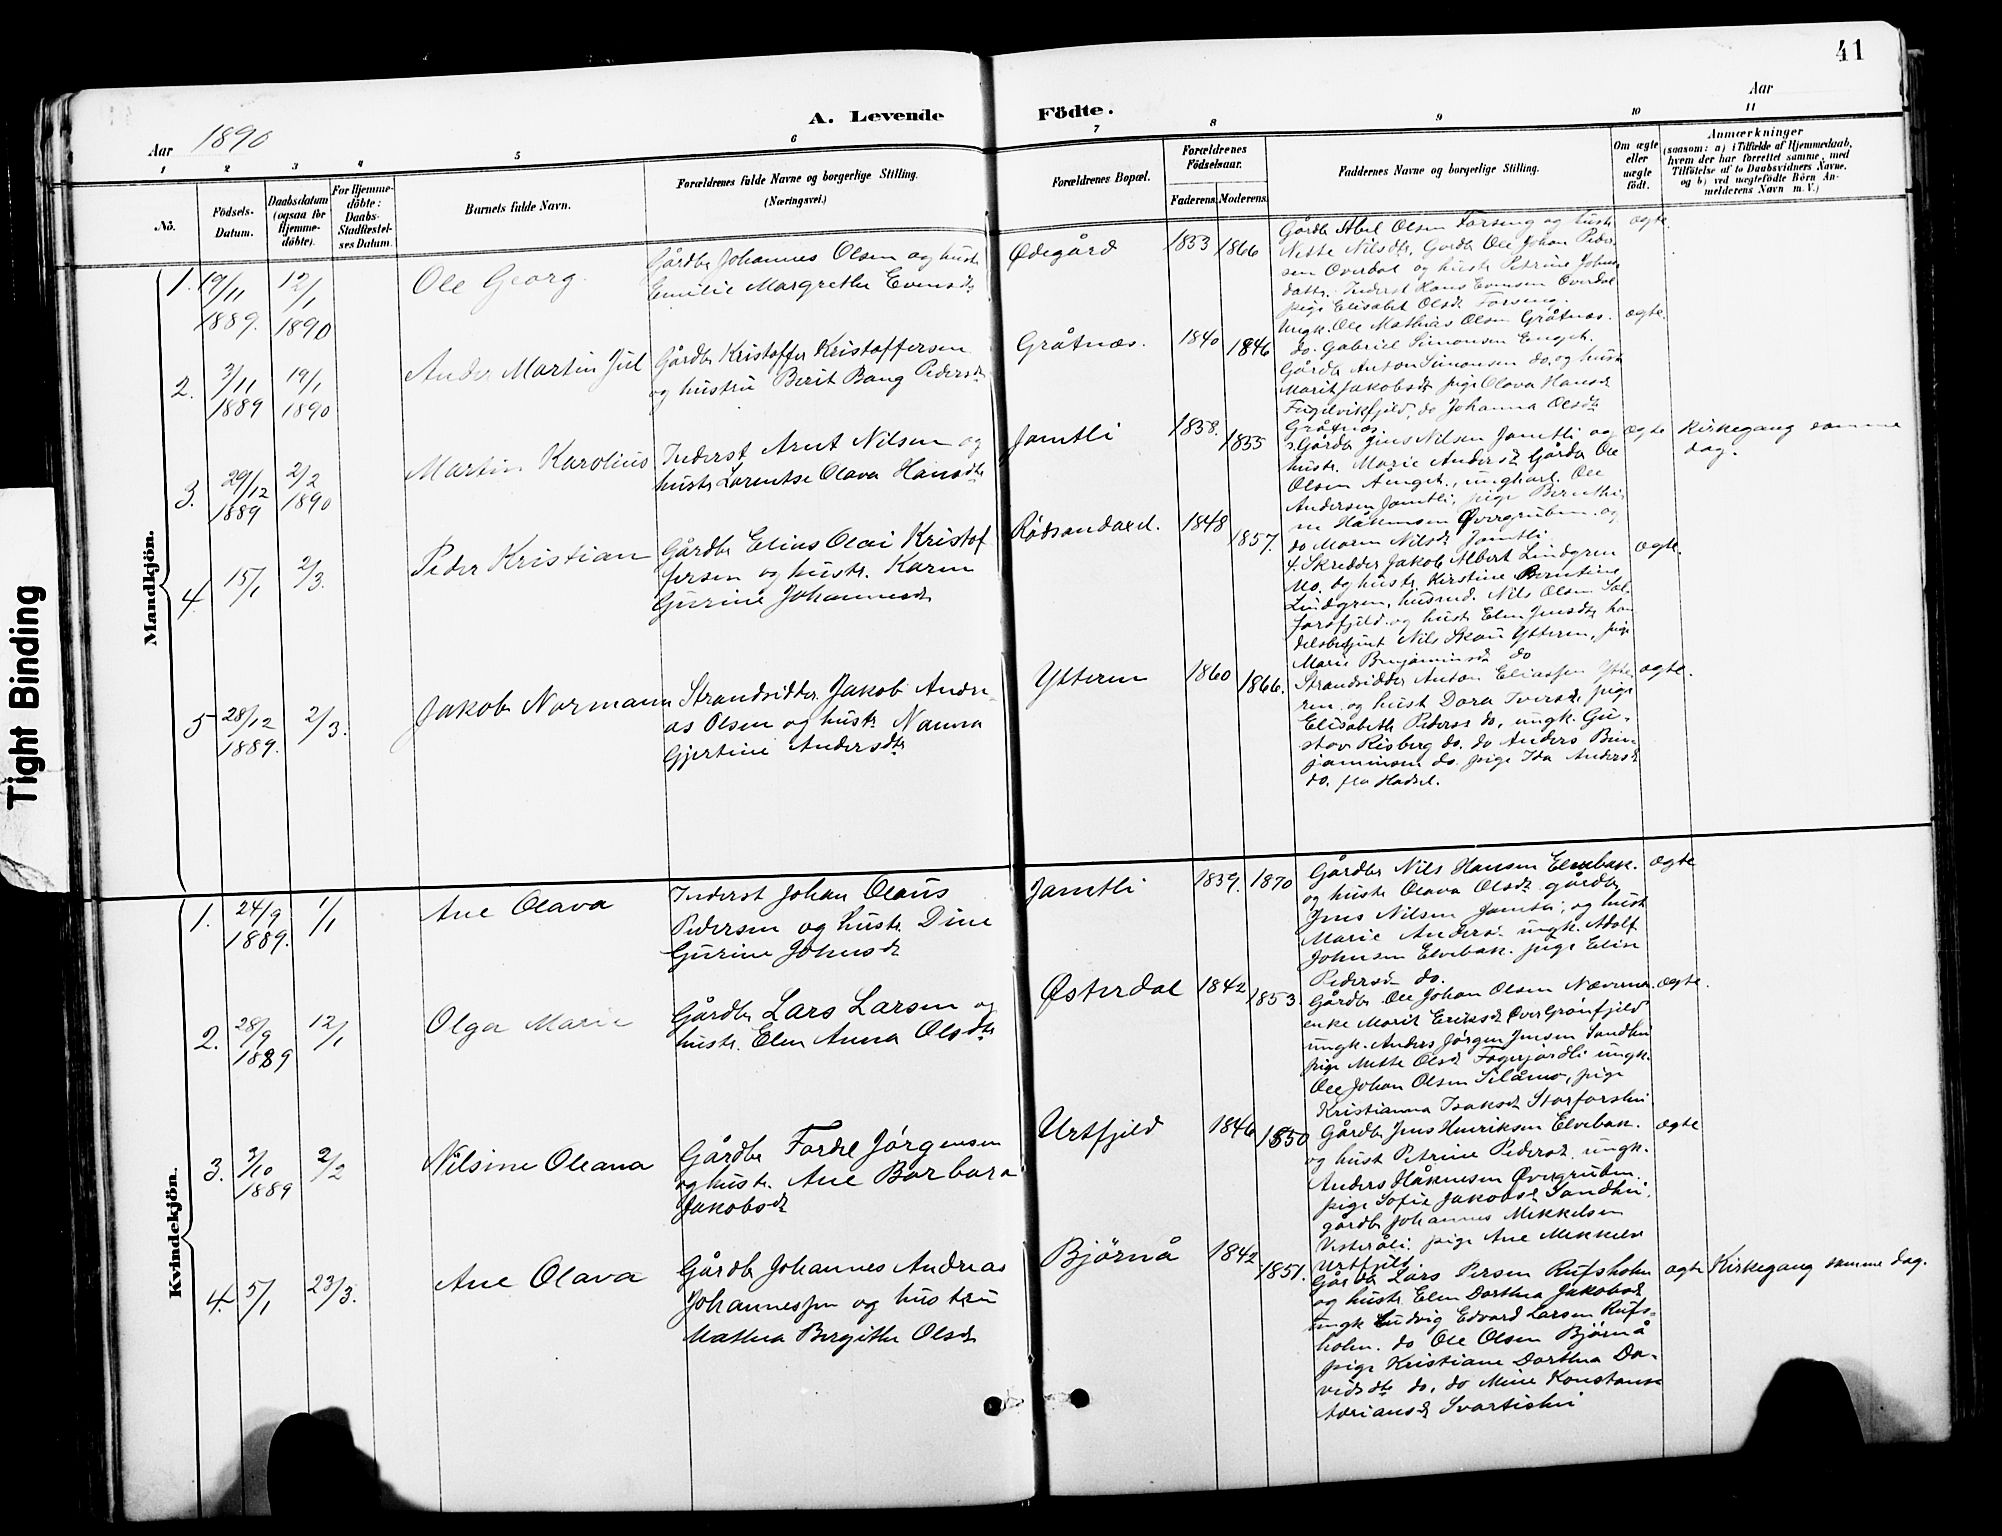 41
A. Levende Födte.
Aar 1890
Aar
1 2 3 4 5 6 7 8 9 10 11
No.
Födsels-
Datum.
Daabsdatum
(ogsaa for
Hjemme-
döbte).
For Hjemme-
döbte:
Daabs-
Stadfæstel-
ses Datum.
Barnets fulde Navn.
Forældrenes fulde Navne og borgerlige Stilling.
(Næringsvei.)
Forældrenes Bopæl.
Forældrenes
Födselsaar.
Faderens. Moderens.
Faddernes Navne og borgerlige Stilling.
Om ægte
eller
uægte
födt.
Anmærkninger
(saasom: a) i Tilfælde af Hjemmedaab,
hvem der har forrettet samme, med
Tilföielse af to Daabsvidners Navne,
og b) ved uægtefödte Börn An-
melderens Navn m. V.)
Tight Binding
Mandkjön.
1.
19/11
1889.
12/1
1890
Ole Georg.
Gårdbr Johannes Olsen og hustr.
Emilie Margrethe Evensdtr
Ødegård
1853
1866
Gårdbr Abel Olsen Forseng og hustr
Nette Nilsdtr, Gårdbr Ole Johan Peder-
sen Overdal og hustr Petrine Johns
dattr. Inderst Hans Evensen Overdal
pige Elisabet Olsdtr Forseng.
ægte.
2.
3/11
1889
19/1
1890
Ander Martin Jul
Gårdbr Kristoffer Kristoffersen
og hustru Berit Bang Pedersdtr
Gråtnæs.
1840
1846
Ungk. Ole Mathias Olsen Gråtnæs.
do. Gabriel Simonsen Enget.
Gårdbr Anton Simonsen do. og hustr
Marit Jakobsdtr pige Olava Hansdtr
Fugelvikfjeld, do Johanna Olsdtr
Gråtnæs.
ægte.
3.
29/12
1889
2/2
1890
Martin Karolius
Inderst Arnt Nilsen og
hustr Lorentse Olava Hansdtr
Jamtli
1858.
1855
3. Gårdbr Jens Nilsen Jamtli og
hustr. Marie Andersdtr Gårdbr Ole
Olsen Ånget., ungkarl. Ole
Andersen Jamtli, pige Bernthi-
ne Håkensen Øvergruben. og
do Maren Nilsdtr Jamtli
ægte
Kirkegang samme
dag.
4
15/1
2/3.
Peder Kristian
Gårdbr Elias Olai Kristof
fersen og hustr. Karen
Gurine Johannesdtr
Rødsandaxel.
1848
1857.
4. Skredder Jakob Albert Lindgren
Mo. og hustr Kirstine Berntine
Lindgren, husmd. Nils Olsen Sel
forsfjeld. og hustr Elen Jensdtr han
delsbetjent Nils Skau Ytteren, pige
Marie Benjaminsdtr do
ægte.
5
28/12
1889.
2/3.
Jakob Normann
Strandsidder Jakob Andre-
as Olsen og hustr Nanna
Gjertine Andersdtr
Ytteren
1860
1866.
Strandsidder Anton Eliassen Ytte
ren. og hust Dora Iversdtr, pige
Elisabeth Pedersdtr do, ungk. Gu-
stav Risberg do. do Anders Ben-
jaminsen do. pige Ida Andersdtr
do. fra Hadsel.
ægte.
Kvindekjön.
1.
24/9
1889.
1/1
Ane Olava
Inderst Johan Olaus
Pedersen og hustr. Dine
Gurine Johnsdtr
Jamtli
1839.
1870
Gårdbr Nils Hansen Elvebak.
og hustr Olava Olsdtr. gårdbr
Jens Nilsen Jamtli, og hustr
Marie Andersdtr ungk. Adolf
Johnsen Elvebak. pige Elise
Pedersdtr do.
ægte
2.
28/9
1889
12/1
Olga Marie
Gårdbr Lars Larsen og
hustr. Elen Anna Olsdtr
Østerdal
1842
1853.
Gårdbr Ole Johan Olsen Nævernæs.
enke Marit Eriksdtr Øver Grønfjeld
ungk. Anders Jørgen Jensen Sandhei
pige Mette Olsdtr Fagerjordli ungk.
Ole Johan Olsen Silåmo, pige
Kristianna Isaksdtr Storforshei
ægte.
3.
3/10
1889
2/2
Nilsine Oleana
Gårdbr Fordel Jørgensen
og hustr. Ane Barbara
Jakobsdtr
Urtfjeld
1846
1850
Gårdbr Jens Henriksen Elvebak.
og hust Petrine Pedersdtr. ungk.
Anders Håkensen Øvergruben.
pige Sofie Jakobsdtr Sandhei.
gårdbr Johannes Mikkelsen
Vesteråli. pige Ane Mikkelsdtr
Urtfjeld.
ægte
4.
5/1
23/3.
Ane Olava
Gårdbr Johannes Andreas
Johannessen og hustru
Mathea Bergithe Olsdtr
Bjørnå
1842
1851.
Gårdbr Lars Persen Rufsholm
og hustr. Elen Dorthea Jakobsdtr
ungk Ludvig Edvard Larsen Rufs-
holm. do Ole Olsen Bjørnå
pige Kristiane Dorthea Da-
vidsdtr do. do Mine Konstanse
Adriansdtr Svartishei
ægte
Kirkegang samme dag.